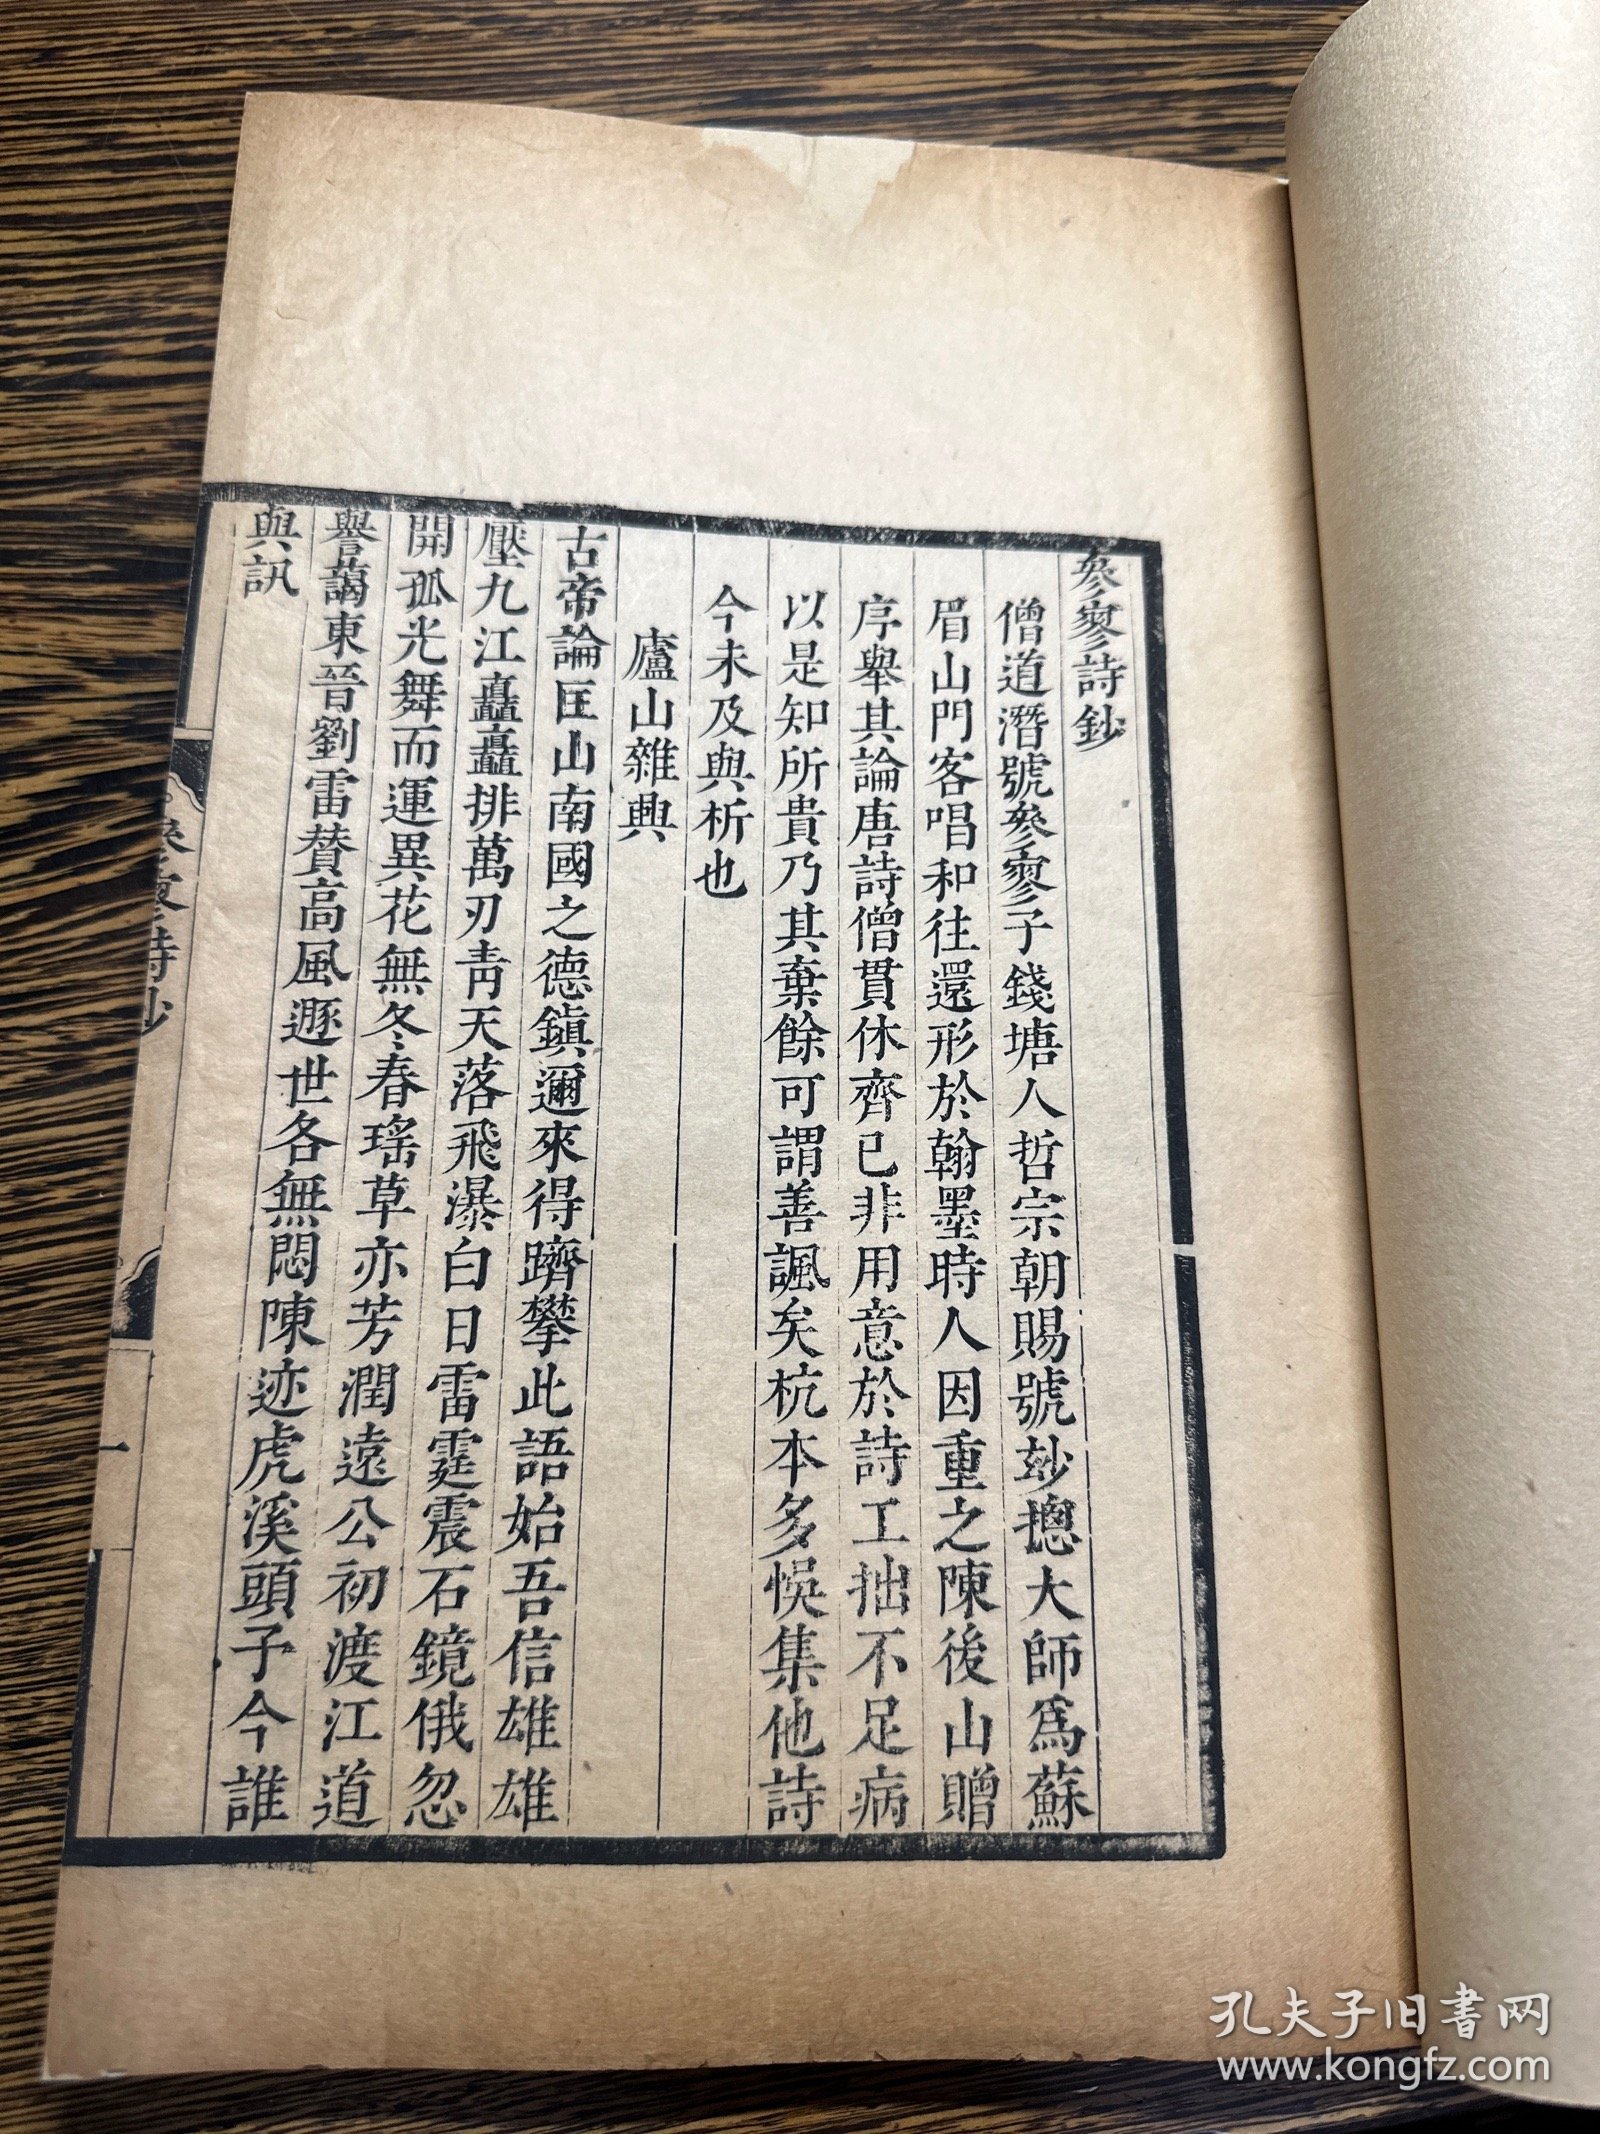 參寥詩鈔
僧道潛號參寥子錢塘人哲宗朝賜號玅摠大師爲蘇
眉山門客唱和往還形於翰墨時人因重之陳後山贈
序舉其論唐詩僧貫休齊已非用意於詩工拙不足病
以是知所貴乃其棄餘可謂善諷矣杭本多悞集他詩
今未及與析也
廬山雜興
古帝論匡山南國之德鎭邇來得躋攀此語始吾信雄雄
壓九江矗矗排萬刃靑天落飛瀑白日雷霆震石鏡俄忽
開孤光舞而運異花無冬春瑤草亦芳潤遠公初渡江道
譽藹東晉劉雷贊高風遯世各無悶陳迹虎溪頭子今誰
與訊
參寥詩鈔
一
孔夫子旧书网
www.kongfz.com